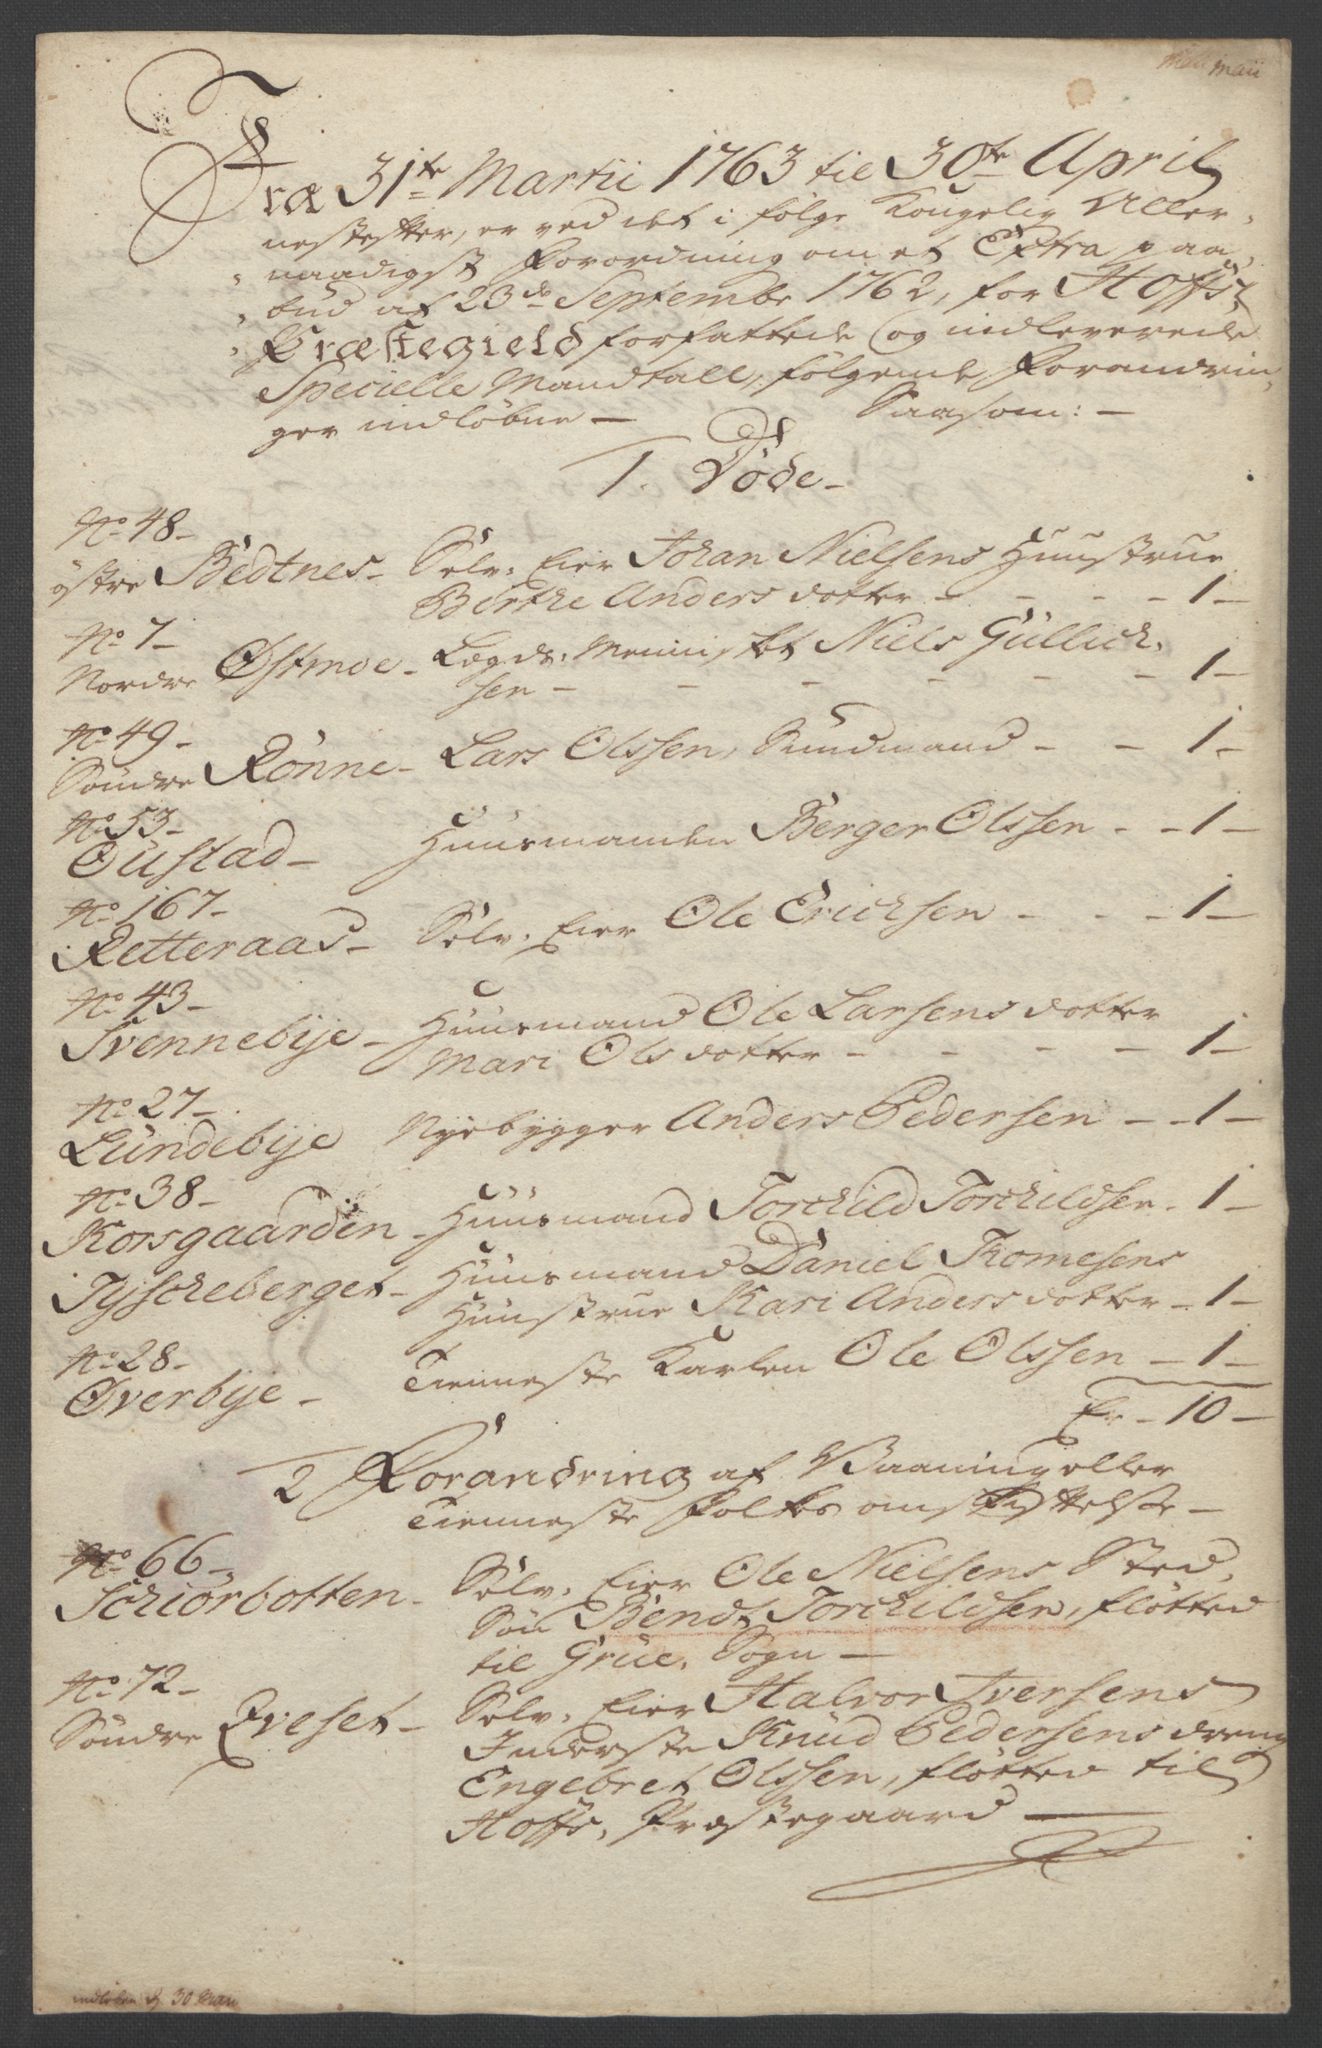 Maii
Fra 31te Martii 1763 til 30te April
nestefter, er ved det i følge Kongelig Aller-
naadigst Forordning om et Extra paa-
bud af 23de Septembr 1762, for Hoffs
Præstegield forfattede og indleverede
Specielle Mandtall, følgende Forandrin-
ger indløbne — Saasom: —
1. Døde —
No 48 —
östre Bedtnes — Selv-Eier Johan Nielsens Huustrue
Birthe Andersdotter — 1 —
No 7 —
Nordre Østmoe — Lægds-Mennisket Niels Gullich-
sen — 1 —
No 49 —
Søndre Rønne — Lars Olssen, Sundmand — 1 —
No 53 —
Oustad — Huusmanden Berger Olssen — 1 —
No 167 —
Retteraas — Selv-Eier Ole Erichsen — 1 —
No 43 —
Svennebye — Huusmand Ole Larsens dotter
Mari Olsdotter — 1 —
No 27 —
Lundebye Nyebygger Anders Pedersen — 1 —
No 38 —
Korsgaarden — Huusmand Torchild Torchildsen — 1 —
Tyskeberget — Huusmand Daniel Thomesens
Huustrue Kari Andersdotter — 1 —
No 28 —
Øverbye — Tienneste Karlen Ole Olssen — 1 —
Er — 10 —
2 Forandring af Vaaning eller
Tienneste Folkes omskiftelse —
No 66 —
Schiørbotten — Selv-Eier Ole Nielsens Sted-
Søn Bendt Torchildsen, fløtted
til Grue-Sogn —
No 72 —
Søndre Eveset — Selv-Eier Halvor Iversens
Inderste Knud Pedersens dreng
Engebret Olssen, fløtted til
Hoffs-Præstegaard —
indløben d 30 Maii